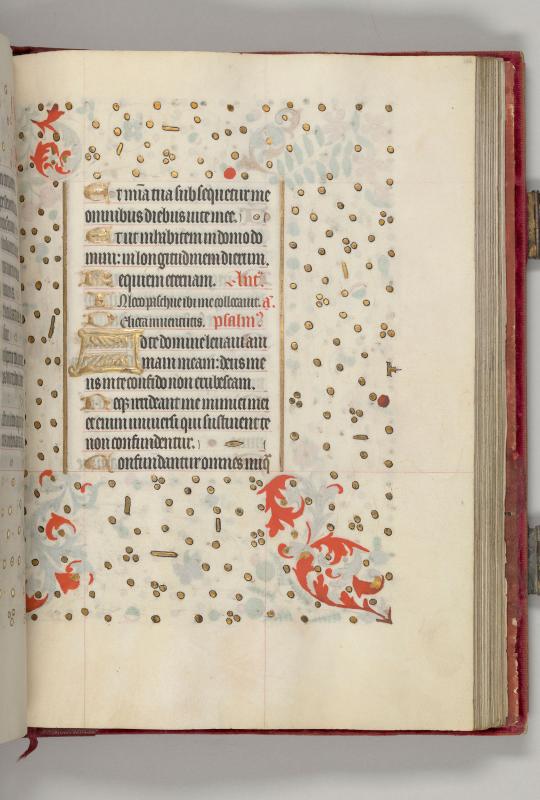 Et mīa tua subsequetur me
omnibus diebus vite mee.
Et ut inhabitem in domo do
mini: in longitudinem dierum.
Requiem eternam. Ant̾
In loco pascue ibi me collocavit. a.
Psalm̾
Ad te domine levavi am
mam meam: deus me
us in te confido non erubescam.
Neqꝫ irrideant me inimici mei
etenim universi qui sustinent te
non confundentur.
Confundantur omnes iniqͣ